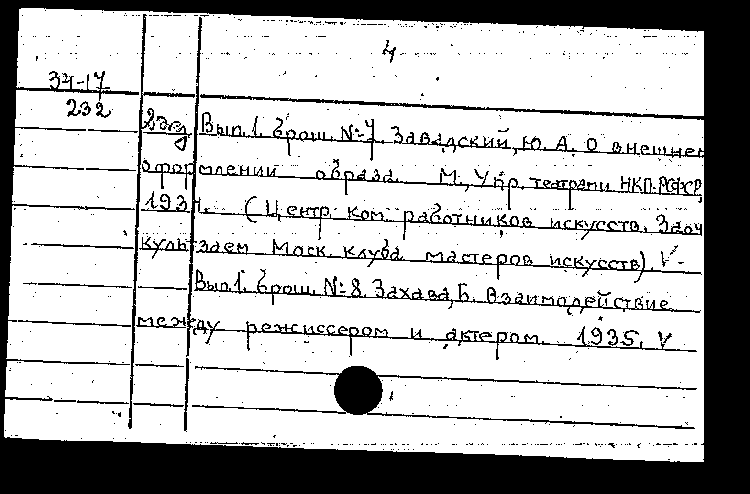 4
34-17
232
2экз Вып.1. брош. №7. Завадский, Ю. А. О внешнем
оформлении образа. М., Упр. театрами НКП-РСФСР,
1934. (Центр. ком. работников искусств. Заоч
культзаем Моск. клуба мастеров искусств). V-
Вып.1. брош. №8. Захава, Б. Взаимодействие
между режиссером и актером. 1935. V